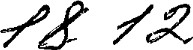 18 12